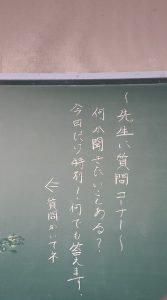 ～先生に質問コーナー～
何か聞きたいことある？
今日だけ特別！何でも答えます。
⇐質問かいてネ